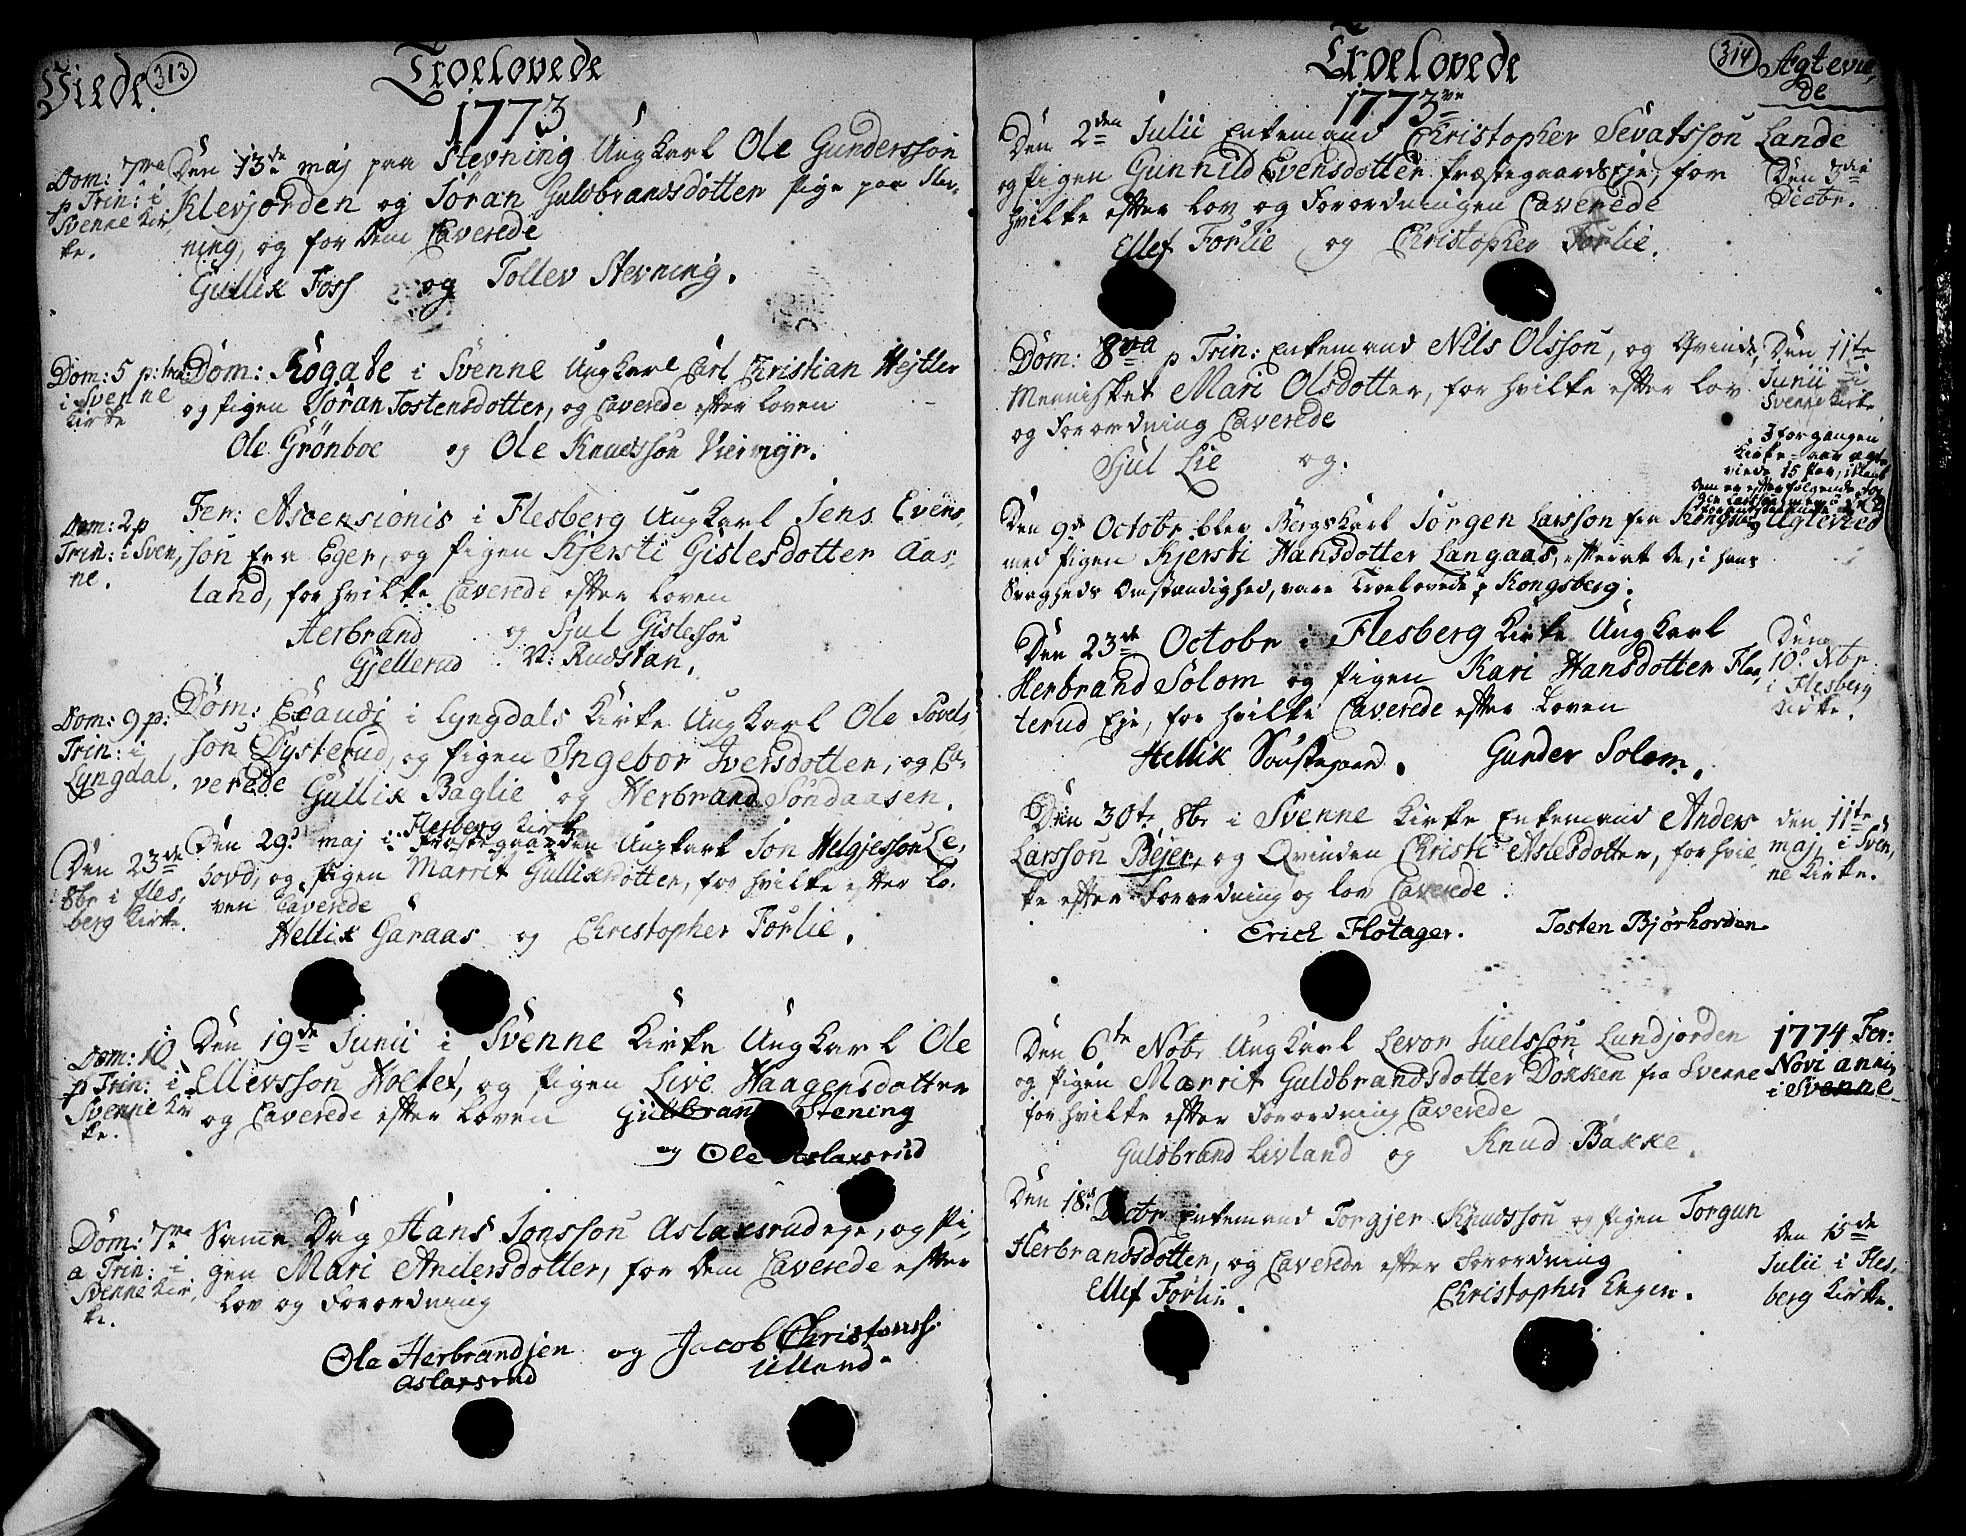 Viede.
313
Troelovede
1773
Dom: 7ma
p Trin: i
Svenne Kir,
ke.
Den 13de maj paa Stevning Ungkarl Ole Gundersson
Klevjorden og Jøran Guldbrandsdotter Pige paa Stev,
ning, og for dem Caverede
Gullik Foss og Tollev Stevning.
Dom: 5 p: tri
i Svenne
Kirke
Dom: Rogate i Svenne Ungkarl Carl Christian Hejtler
og Pigen Jøran Tostensdotter, og Caverede efter Loven
Ole Grønboe og Ole Knudssøn Viermyr.
Dom: 2 p
Trin: i Sven,
ne.
Fer: Ascensionis i Flesberg Ungkarl Jens Evens,
søn fra Eger, og Pigen Kjersti Gislesdotter Aas,
land, for hvilke Caverede efter Loven
Herbrand og Sjul Gislessøn
Gjellerud V: Rudstan.
Dom: 9 p:
Trin: i
Lyngdal.
Dom: Exaudi i Lyngdals Kirke Ungkarl Ole Sovels,
søn Øysterud, og Pigen Ingebor Iversdotter, og Ca,
verede Gullik Baglie og Herbrand Søndaasen.
Den 23de
8br i Fles,
berg Kirke.
Flesberg Kirke
Den 29d maj i Præstegaarden Ungkarl Jon Helgjessøn Le,
hovd, og Pigen Marrit Gulliksdotter, for hvilke efter Lo,
ven Caverede
Hellik Garaas og Christopher Førlie.
Dom: 10
p Trin: i
Svenne Kir
ke.
Den 19de Junii i Svenne Kirke Ungkarl Ole
Ellevssøn Holtet, og Pigen Live Haagensdotter
og Caverede efter Loven Gulbrand Stening
og Ole Aslaxsrud
Dom: 7ma
a Trin: i
Svenne Kir,
ke.
Samme Dag Hans Jonssøn Aslaxsrudeje, og Pi,
gen Mari Andersdotter, for dem Caverede efter
Lov og Forordning
Ole Herbrandsen og Jacob Christensh.
Aslaxsrud Ulland
Troelovede
314
Agtevie,
de
1773ve
Den 2den Julii Enkemand Christopher Sevatssøn Lande
og Pigen Gunhild Evensdotter Præstegaards Eje, for
hvilke efter Lov og Forordningen Caverede
Ellef Førlie og Christopher Førlie.
Den 3die
Decbr.
Dom: 8va p Trin: Enkemand Nils Olssøn, og Qvinde,
Mennisket Mari Olsdotter, for hvilke efter Lov
og Forordning Caverede
Sjul Lie og.
Den 11te
Junii i
Svenne Kirke
I forgangen
Kirke-aar ægte
viede 15 Par,
Den 9de Octobr blev Bergskarl Jørgen Larssøn fra Kongsberg Agteviet
med Pigen Kjersti Hansdotter Langaas, efterat de, i hans
Svagheds Omstændighed, vare Troelovede p Kongsberg.
Den 23de Octobr i Flesberg Kirke Ungkarl
Herbrand Solom og Pigen Kari Hansdotter Flaa,
terud Eje, for hvilke Caverede efter Loven
Hellik Sønstegaard. Gunder Solem.
Den
10de Xbr
i Flesberg
Kirke.
Den 30te 8br i Svenne Kirke Enkemand Anders
Larssøn Bejer, og Qvinden Christi Aslesdotter, for hvil
ke efter Forordning og Lov Caverede
Erich Flotager. Tosten Bjørhorden
den 11te
maj, i Sven,
ne Kirke.
Den 6te Nobr Ungkarl Levor Juelssøn Lundjorden
og Pigen Marrit Guldbrandsdotter Dokken fra Svenne
for hvilke efter Forordning Caverede
Guldbrand Livland og Knud Bakke.
1774 Fer:
Novi anni
i Svenne
Den 18d Decbr Enkemand Torgjer Knudssøn og Pigen Torgun
Herbrandsdotter, og Caverede efter Forordning
Ellef Førlie. Christopher Engen.
Den 15de
Julii i Fles,
berg Kirke.